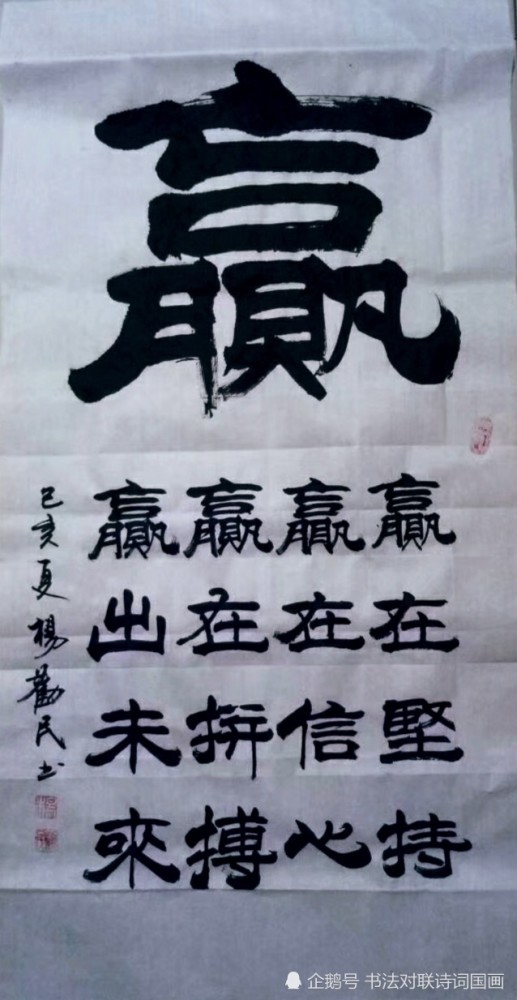 赢
赢在堅持
赢在信心
赢在拼搏
赢出未來
己亥夏楊勸民书
企鹅号 书法对联诗词国画